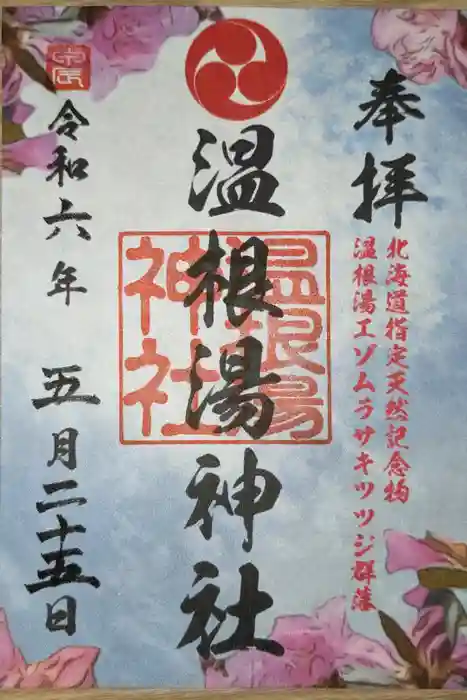 奉拝
北海道指定天然記念物
温根湯エゾムラサキツツジ群落
温根湯神社
温根湯神社
令和六年 五月二十五日